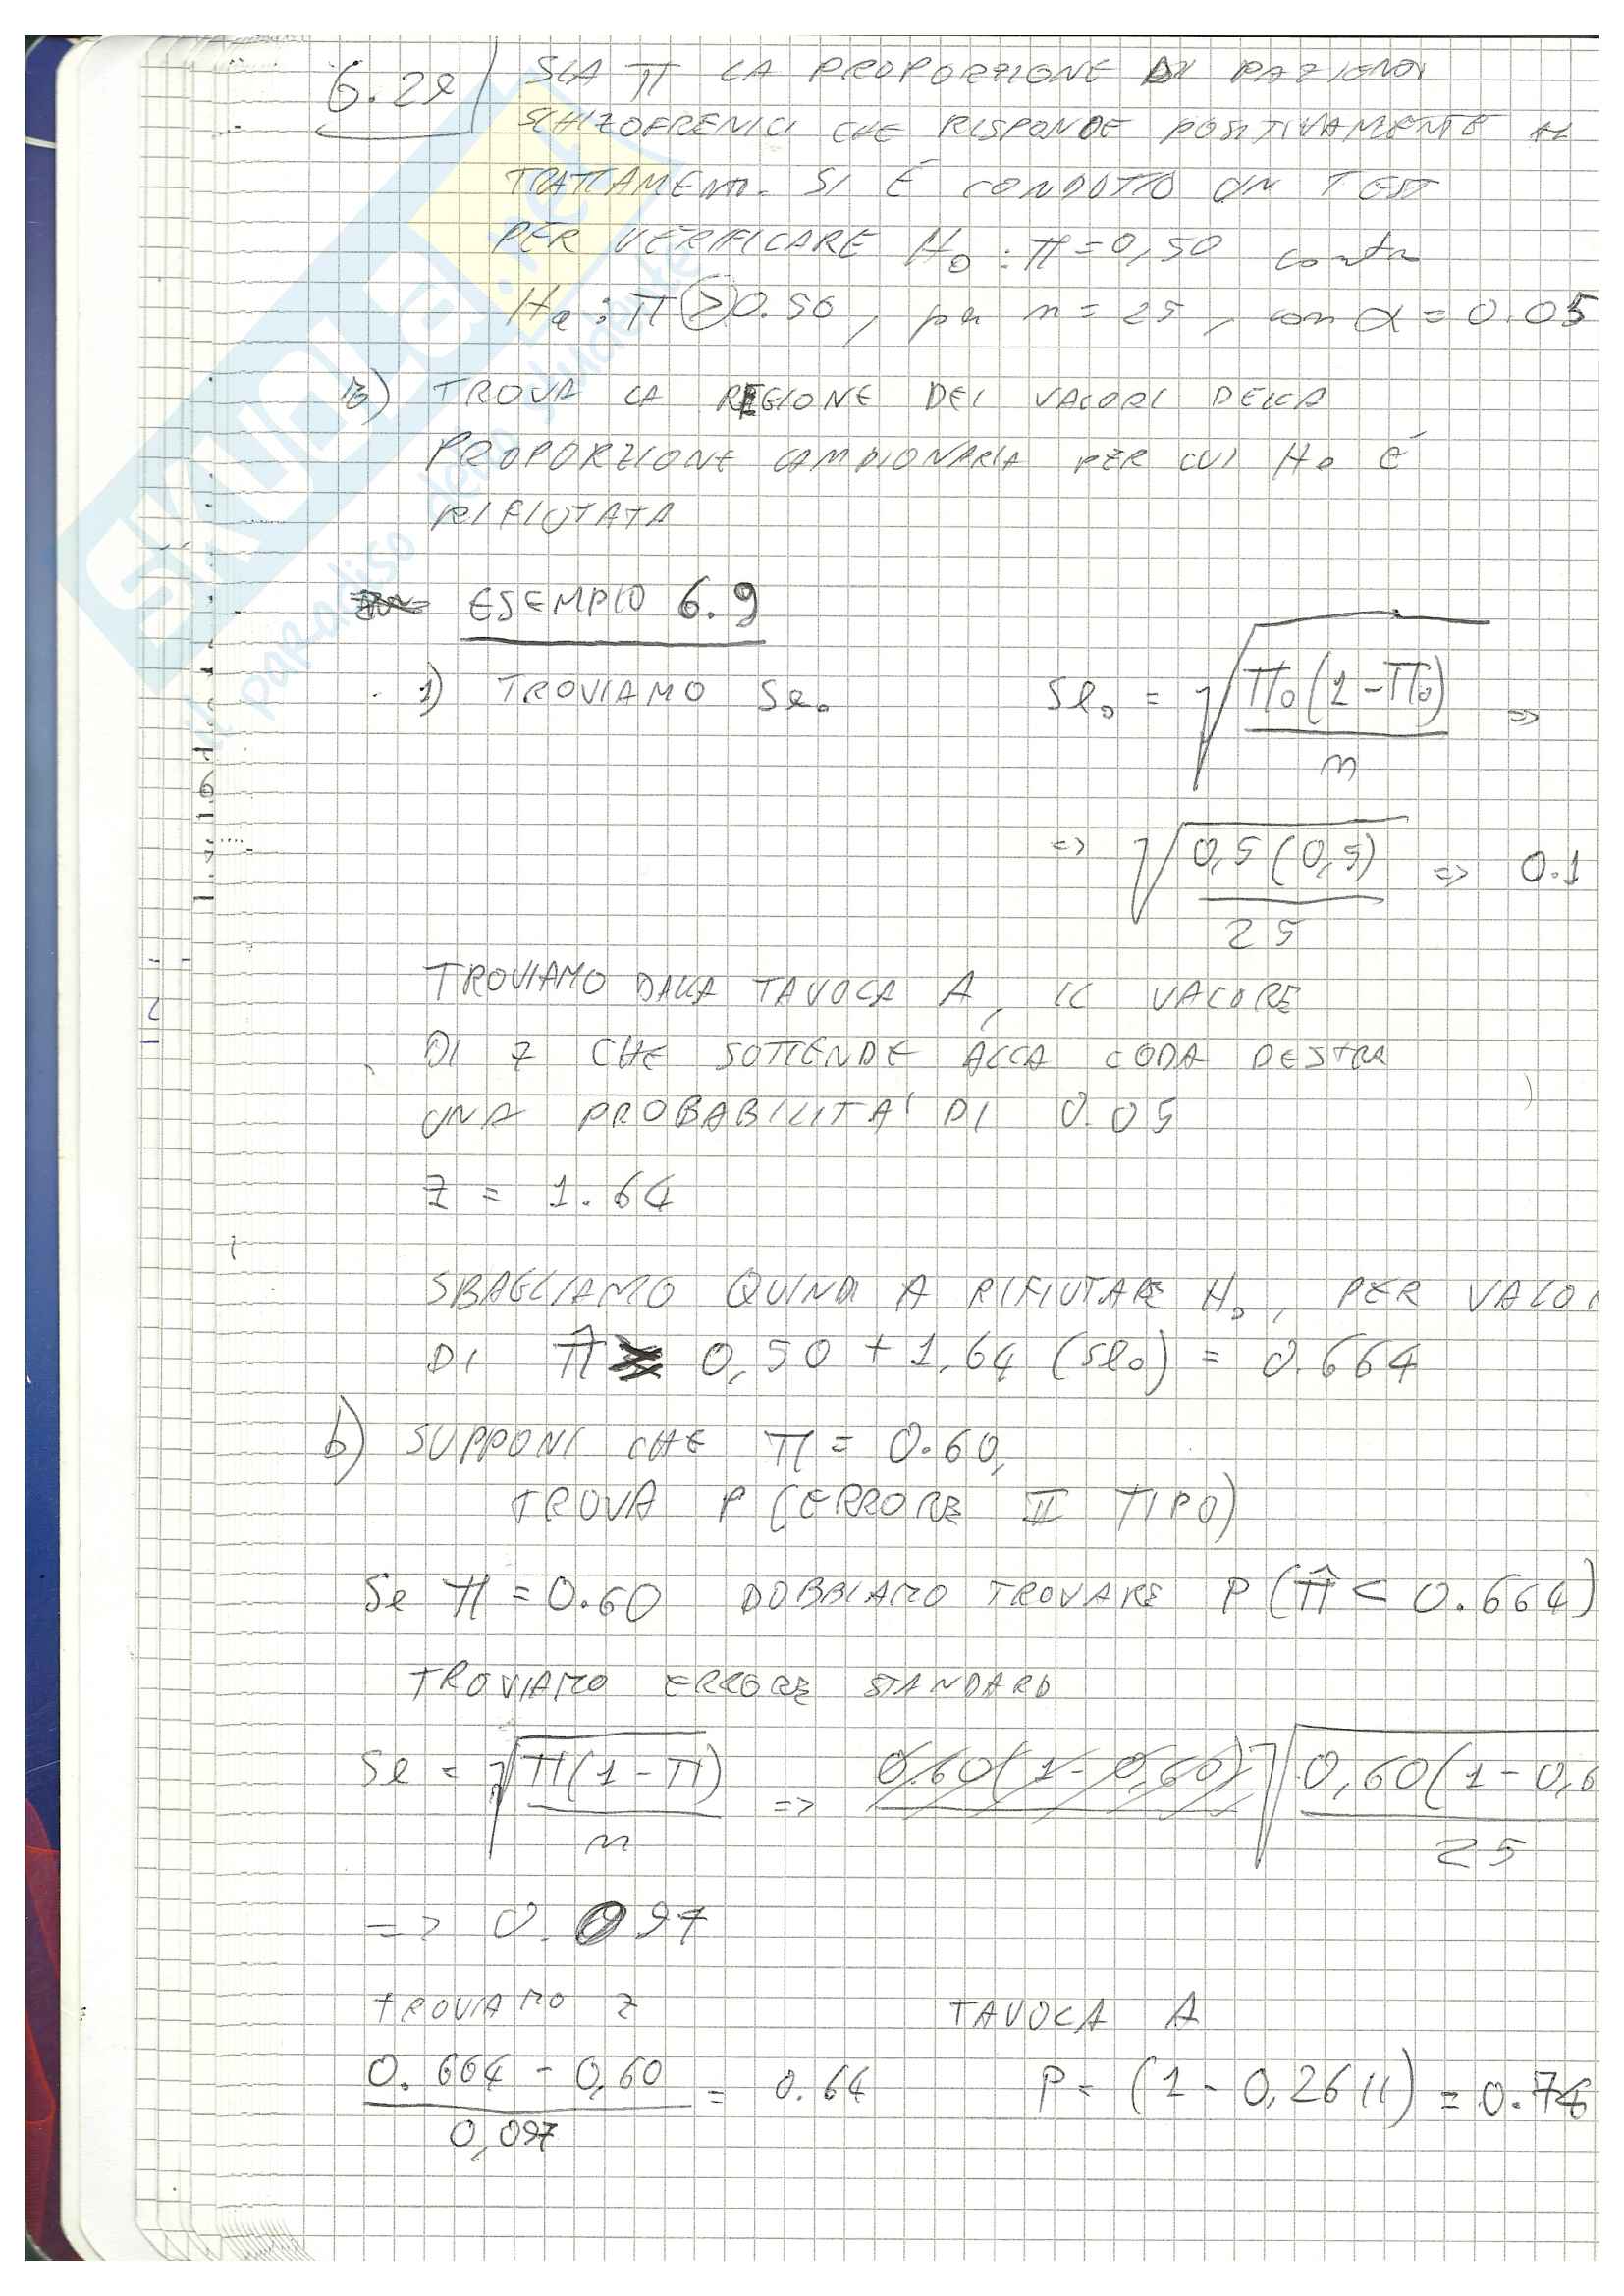 6.29) SIA π LA PROPORZIONE DI PAZIENTI
SCHIZOFRENICI CHE RISPONDE POSITIVAMENTE AL
TRATTAMENTO. SI É CONDOTTO UN TEST
PER VERIFICARE H₀ : π = 0,50 contro
Ha : π > 0.50, per n = 25, con α = 0.05
B) TROVA LA REGIONE DEI VALORI DELLA
PROPORZIONE CAMPIONARIA PER CUI H₀ É
RIFIUTATA
ESEMPIO 6.9
1) TROVIAMO Se₀ Se₀ = √(π₀(1-π₀)/n) =>
=> √(0,5(0,5)/25) => 0.1
TROVIAMO DALLA TAVOLA A, IL VALORE
DI Z CHE SOTTENDE ALLA CODA DESTRA
UNA PROBABILITA' DI 0.05
Z = 1.64
SBAGLIAMO QUINDI A RIFIUTARE H₀, PER VALOR
DI π̂ ≥ 0,50 + 1,64 (se₀) = 0.664
b) SUPPONI CHE π = 0.60,
TROVA P (ERRORE II TIPO)
Se π = 0.60 DOBBIAMO TROVARE P(π̂ < 0.664)
TROVIAMO ERRORE STANDARD
Se = √(π(1-π)/n) => 0.60(1-0,60) √(0,60(1-0,6/25)
=> 0.097
TROVIAMO Z TAVOLA A
(0.664 - 0,60)/0,097 = 0.64 P = (1 - 0,2611) = 0.74
skuola.net
il paradiso dello studente